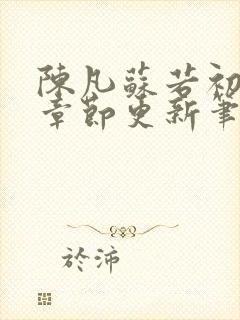 陳凡蘇若初
章節更新筆
於沛